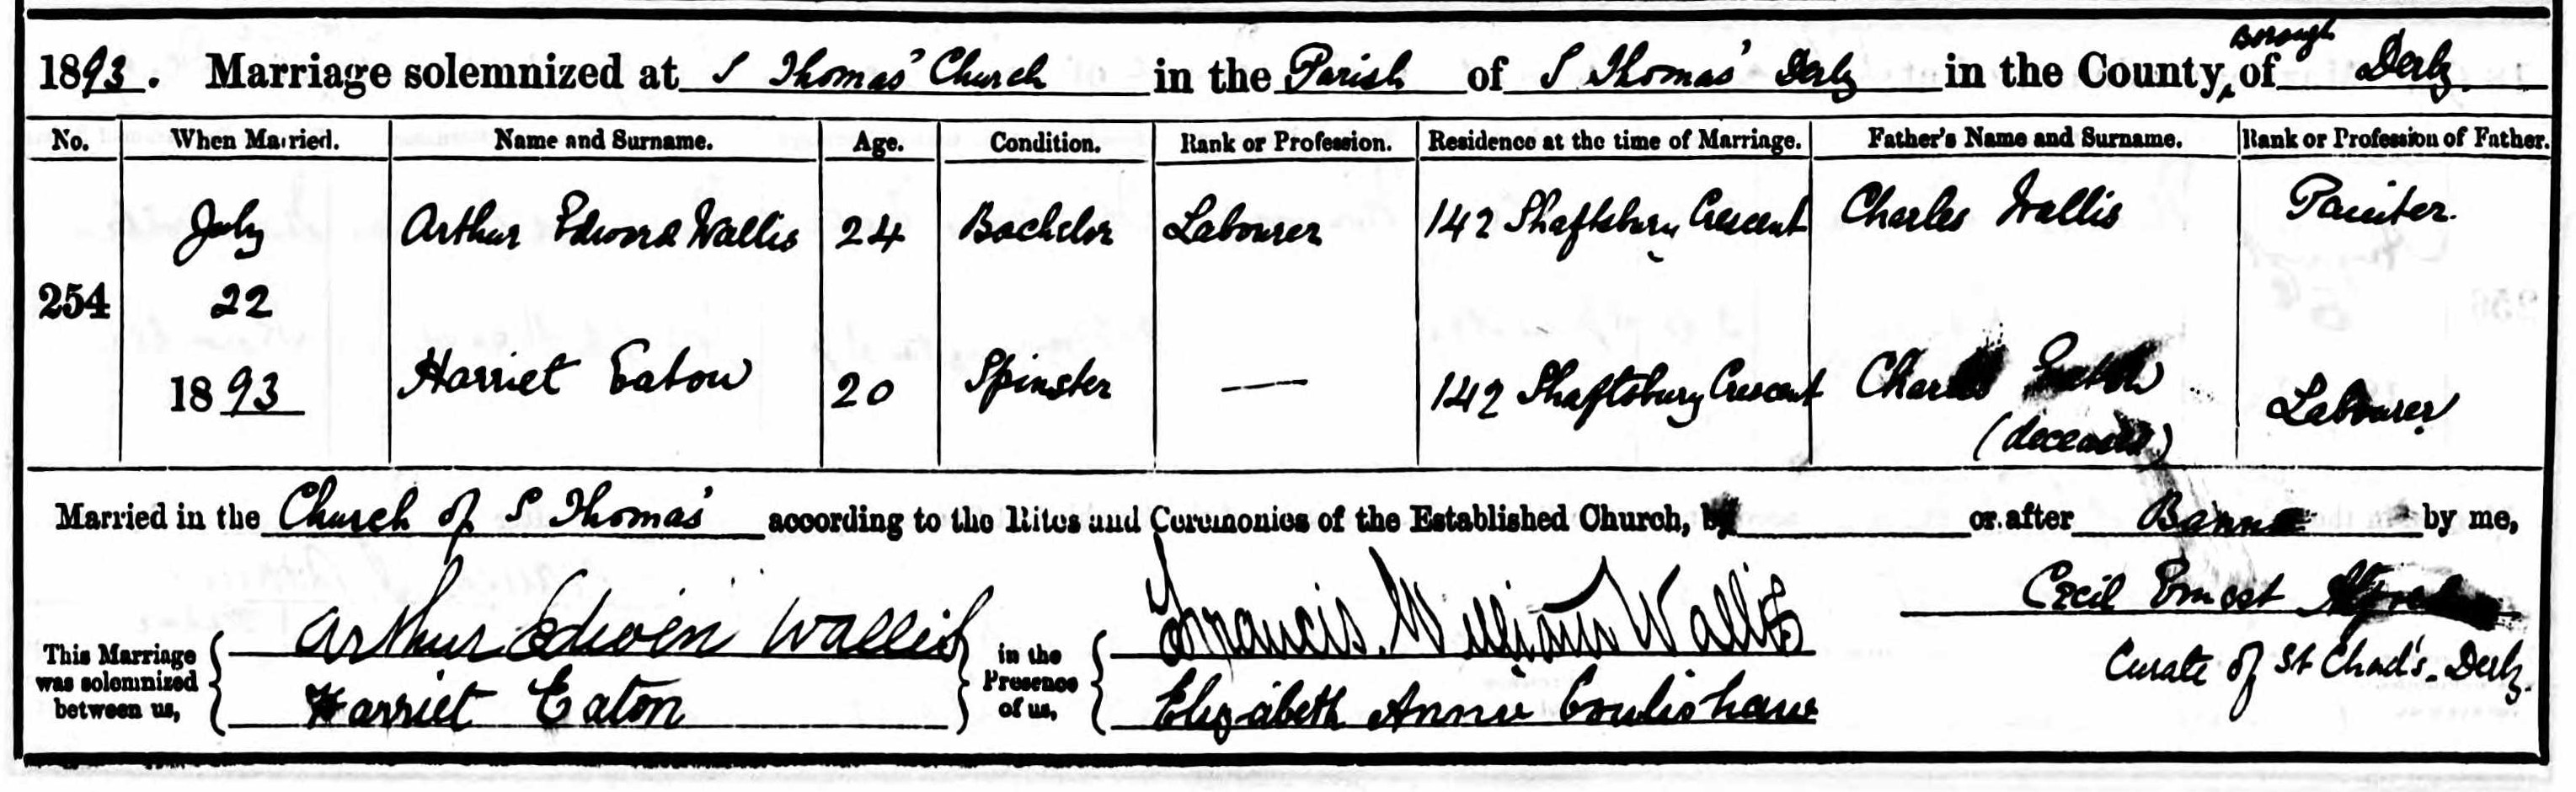 1893. Marriage solemnized at S Thomas' Church in the Parish of S Thomas' Derby in the County, Borough of Derby.
No. When Married. Name and Surname. Age. Condition. Rank or Profession. Residence at the time of Marriage. Father's Name and Surname. Rank or Profession of Father.
254 July 22 1893
Arthur Edward Wallis 24 Bachelor Labourer 142 Shaftsbury Crescent Charles Wallis Painter.
Harriet Eaton 20 Spinster — 142 Shaftsbury Crescent Charles Eaton (deceased) Labourer
Married in the Church of S Thomas' according to the Rites and Ceremonies of the Established Church, by or after Banns by me,
This Marriage was solemnized between us, Arthur Edwin Wallis
Harriet Eaton
in the Presence of us, Francis William Wallis
Elizabeth Annie Coulishaw
Cecil Ernest
Curate of St Chad's. Derby.